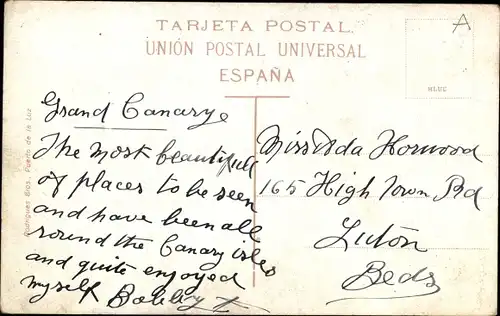 TARJETA POSTAL
UNIÓN POSTAL UNIVERSAL
ESPAÑA
A
Grand Canary
The most beautifull
of places to be seen
and have been all
round the Canary isles
and quite enjoyed
myself Bobby
Miss Ada Horwood
165 High Town Rd
Luton
Beds
Rodrigues Bros. Puerto de la Luz